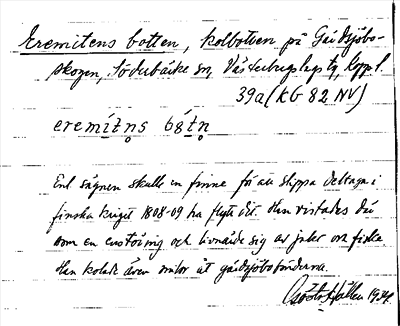 Eremitens botten, kolbotten på Gärdsjöbo-
skogen, Söderbärke sn, Västerbergslags tg, Kopp.l.
39a (KG 82 NV)
eremítn̥s bótn̥
Enl. sägnen skulle en finne för att slippa deltaga i
finska kriget 1808-09 ha flytt dit. Han vistades där
som en enstöring och livnärde sig av jakt och fiske
Han kolade även milor åt gärdsjöbönderna.
Gösta Hallén 1934